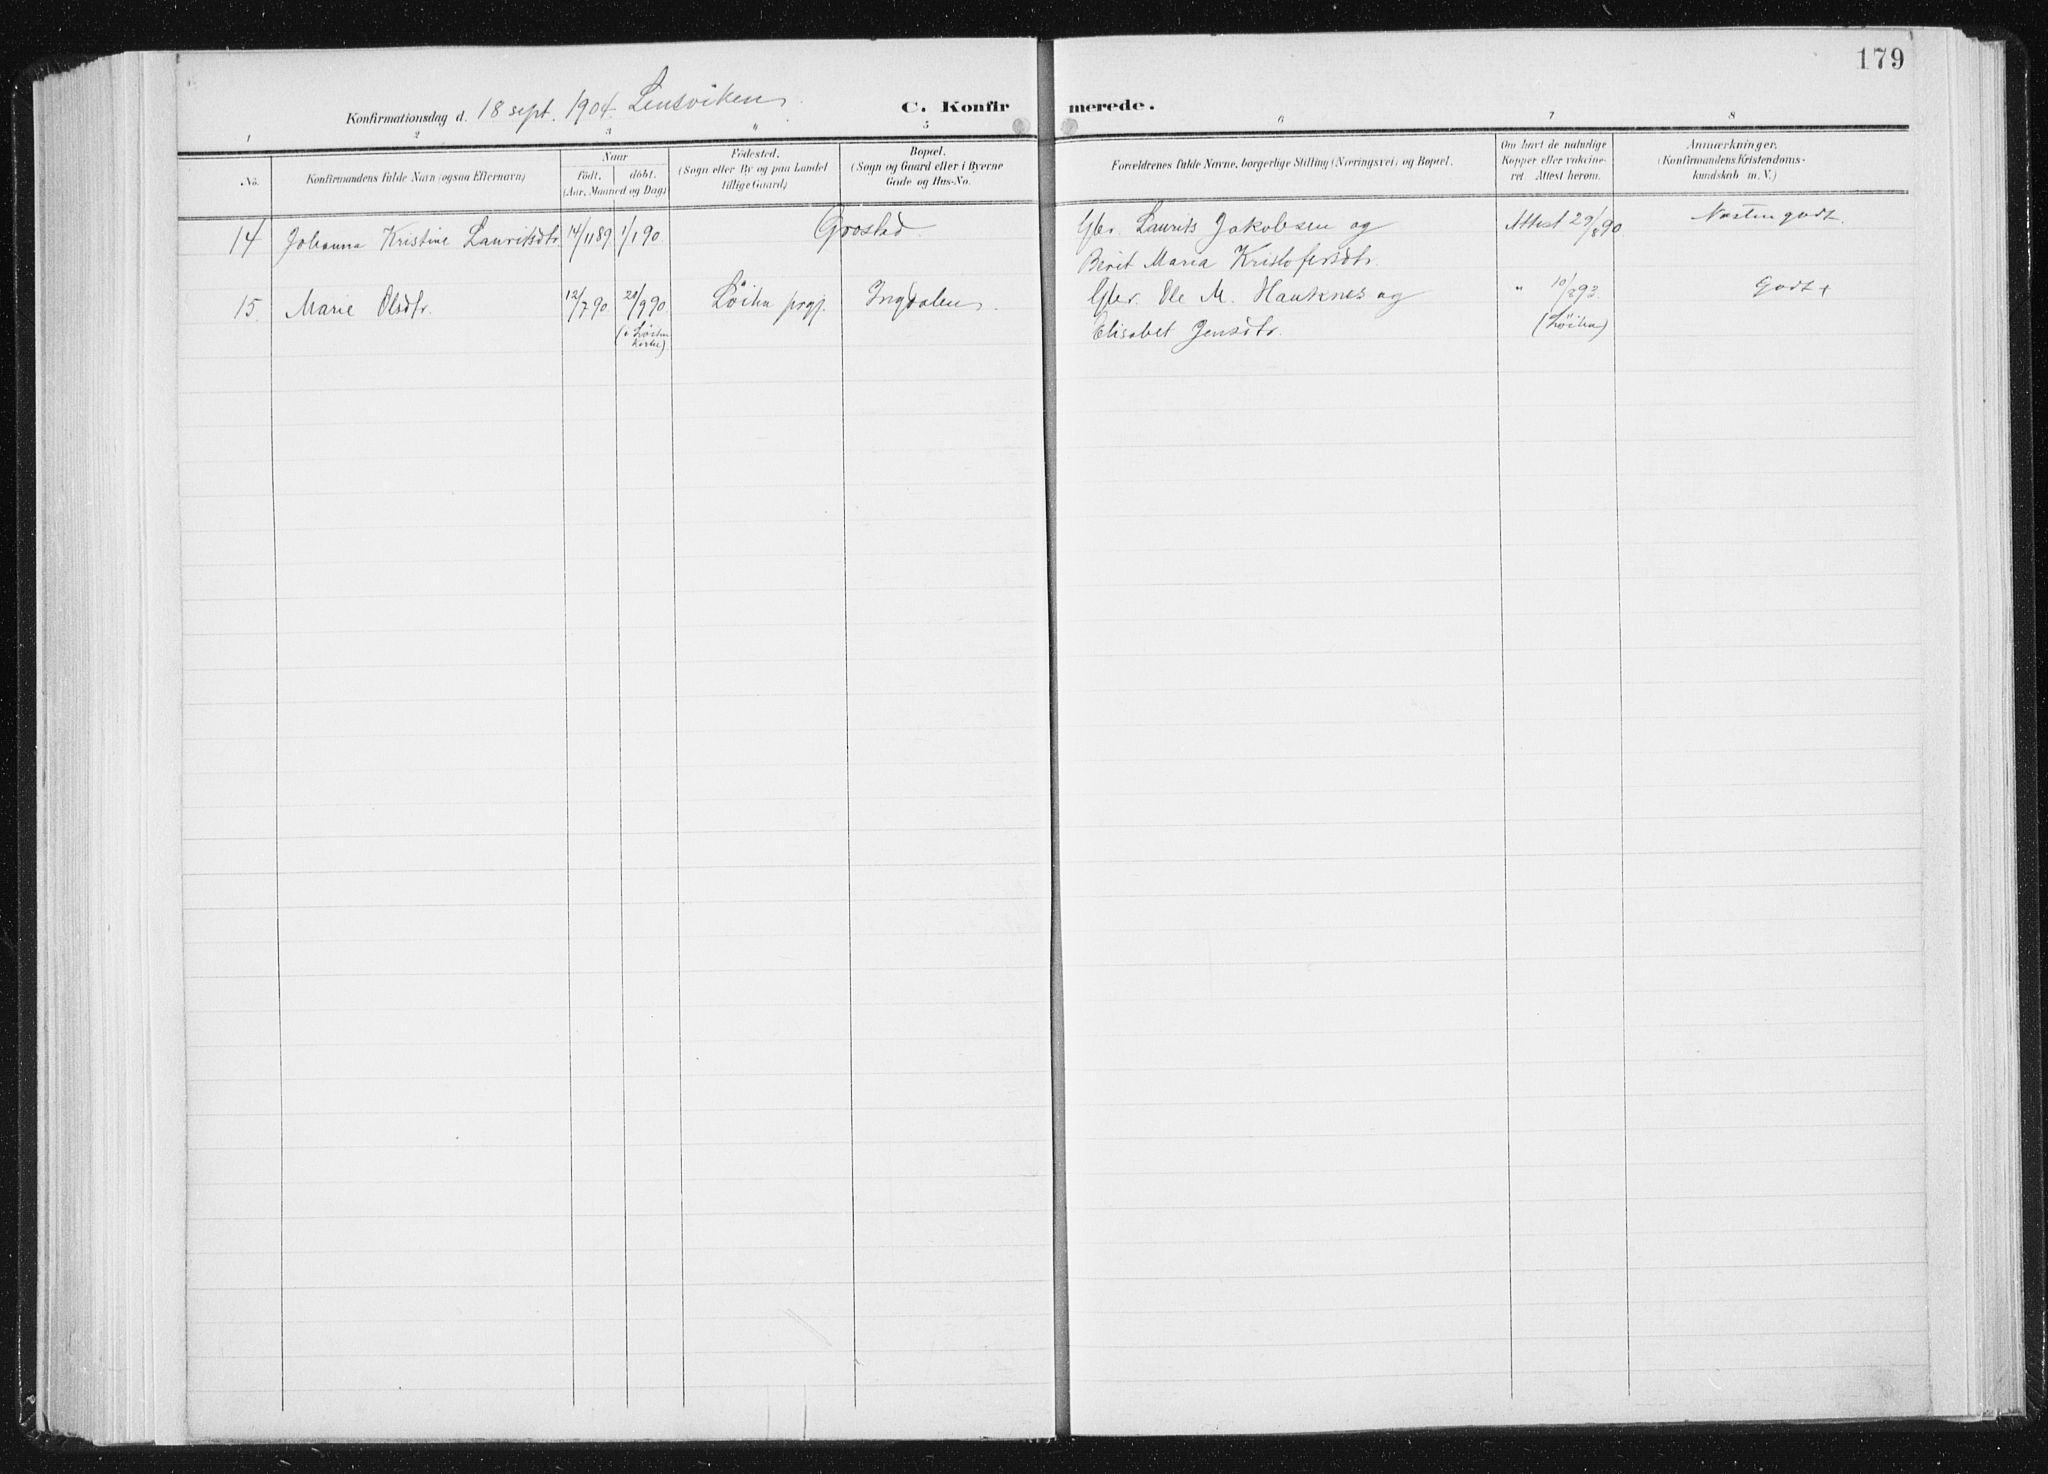 179
Konfirmationsdag d. 18 sept. 1904. Lensviken.
C. Konfirmerede.
1 2 3 4 5 6 7 8
No.
Konfirmandens fulde Navn (ogsaa Efternavn)
Naar
født. døbt.
(Aar, Maaned og Dag)
Fødested.
(Sogn eller By og paa Landet
tillige Gaard)
Bopæl.
(Sogn og Gaard eller i Byerne
Gade og Hus-No.
Forældrenes fulde Navne, borgerlige Stilling (Næringsvei) og Bopæl.
Om havt de naturlige
Kopper eller vakcine-
ret Attest herom.
Anmærkninger.
(Konfirmandens Kristendoms-
kundskab m. V.)
14 Johanna Kristine Lauritsdtr. 14/11 89 1/1 90 Grostad Gbr. Laurits Jakobsen og Attest 29/8 90 Næsten godt.
Berit Maria Kristofersdtr.
15. Marie Olsdtr. 12/7 90 20/9 90 Löiku prgj. Ingdalen. Gbr. Ole M. Hauknes og " 10/8 93. Godt +
(i Löiku Kirke) Elisabet Jensdtr. (Löiku)